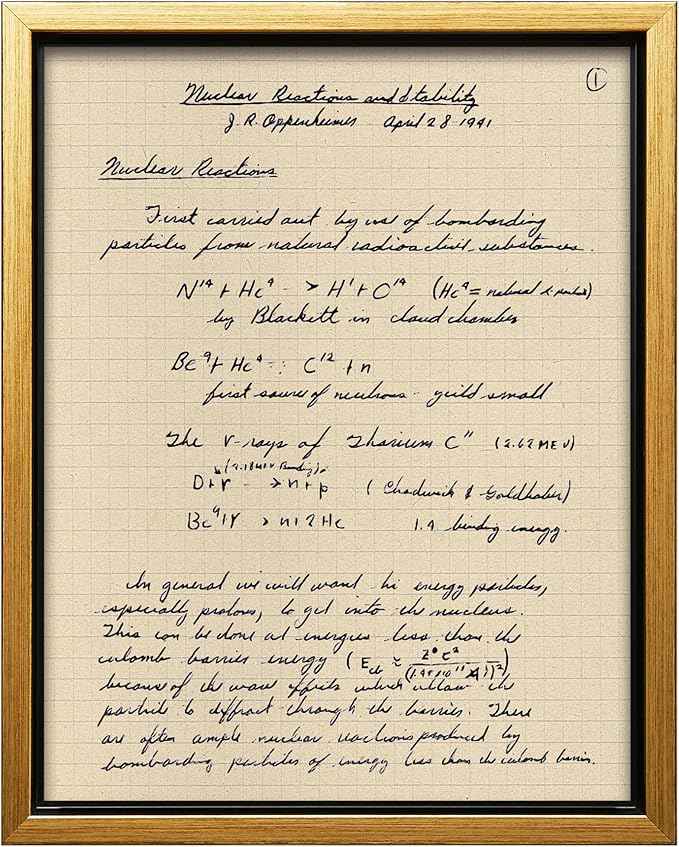 ①
Nuclear Reactions and Stability
J. R. Oppenheimer April 28-1941
Nuclear Reactions
First carried out by use of bombarding
particles from natural radioactive substances.
N¹⁴ + He⁴ -> H¹ + O¹⁴ (He⁴ = natural α-particle)
by Blackett in cloud chamber
Be⁹ + He⁴ C¹² + n
first source of neutrons - yield small
The γ-rays of Thorium C" (2.62 MEV)
(2.18 MEV Binding)
D+γ -> n+p (Chadwick & Goldhaber)
Be⁹+γ > n+2He 1.4 binding energy.
In general we will want hi energy particles,
especially protons, to get into the nucleus.
This can be done at energies less than the
culomb barrier energy (
because of the wave effects which allow the
particle to diffract through the barrier. There
are often ample nuclear reactions produced by
bombarding particles of energy less than the culomb barrier.